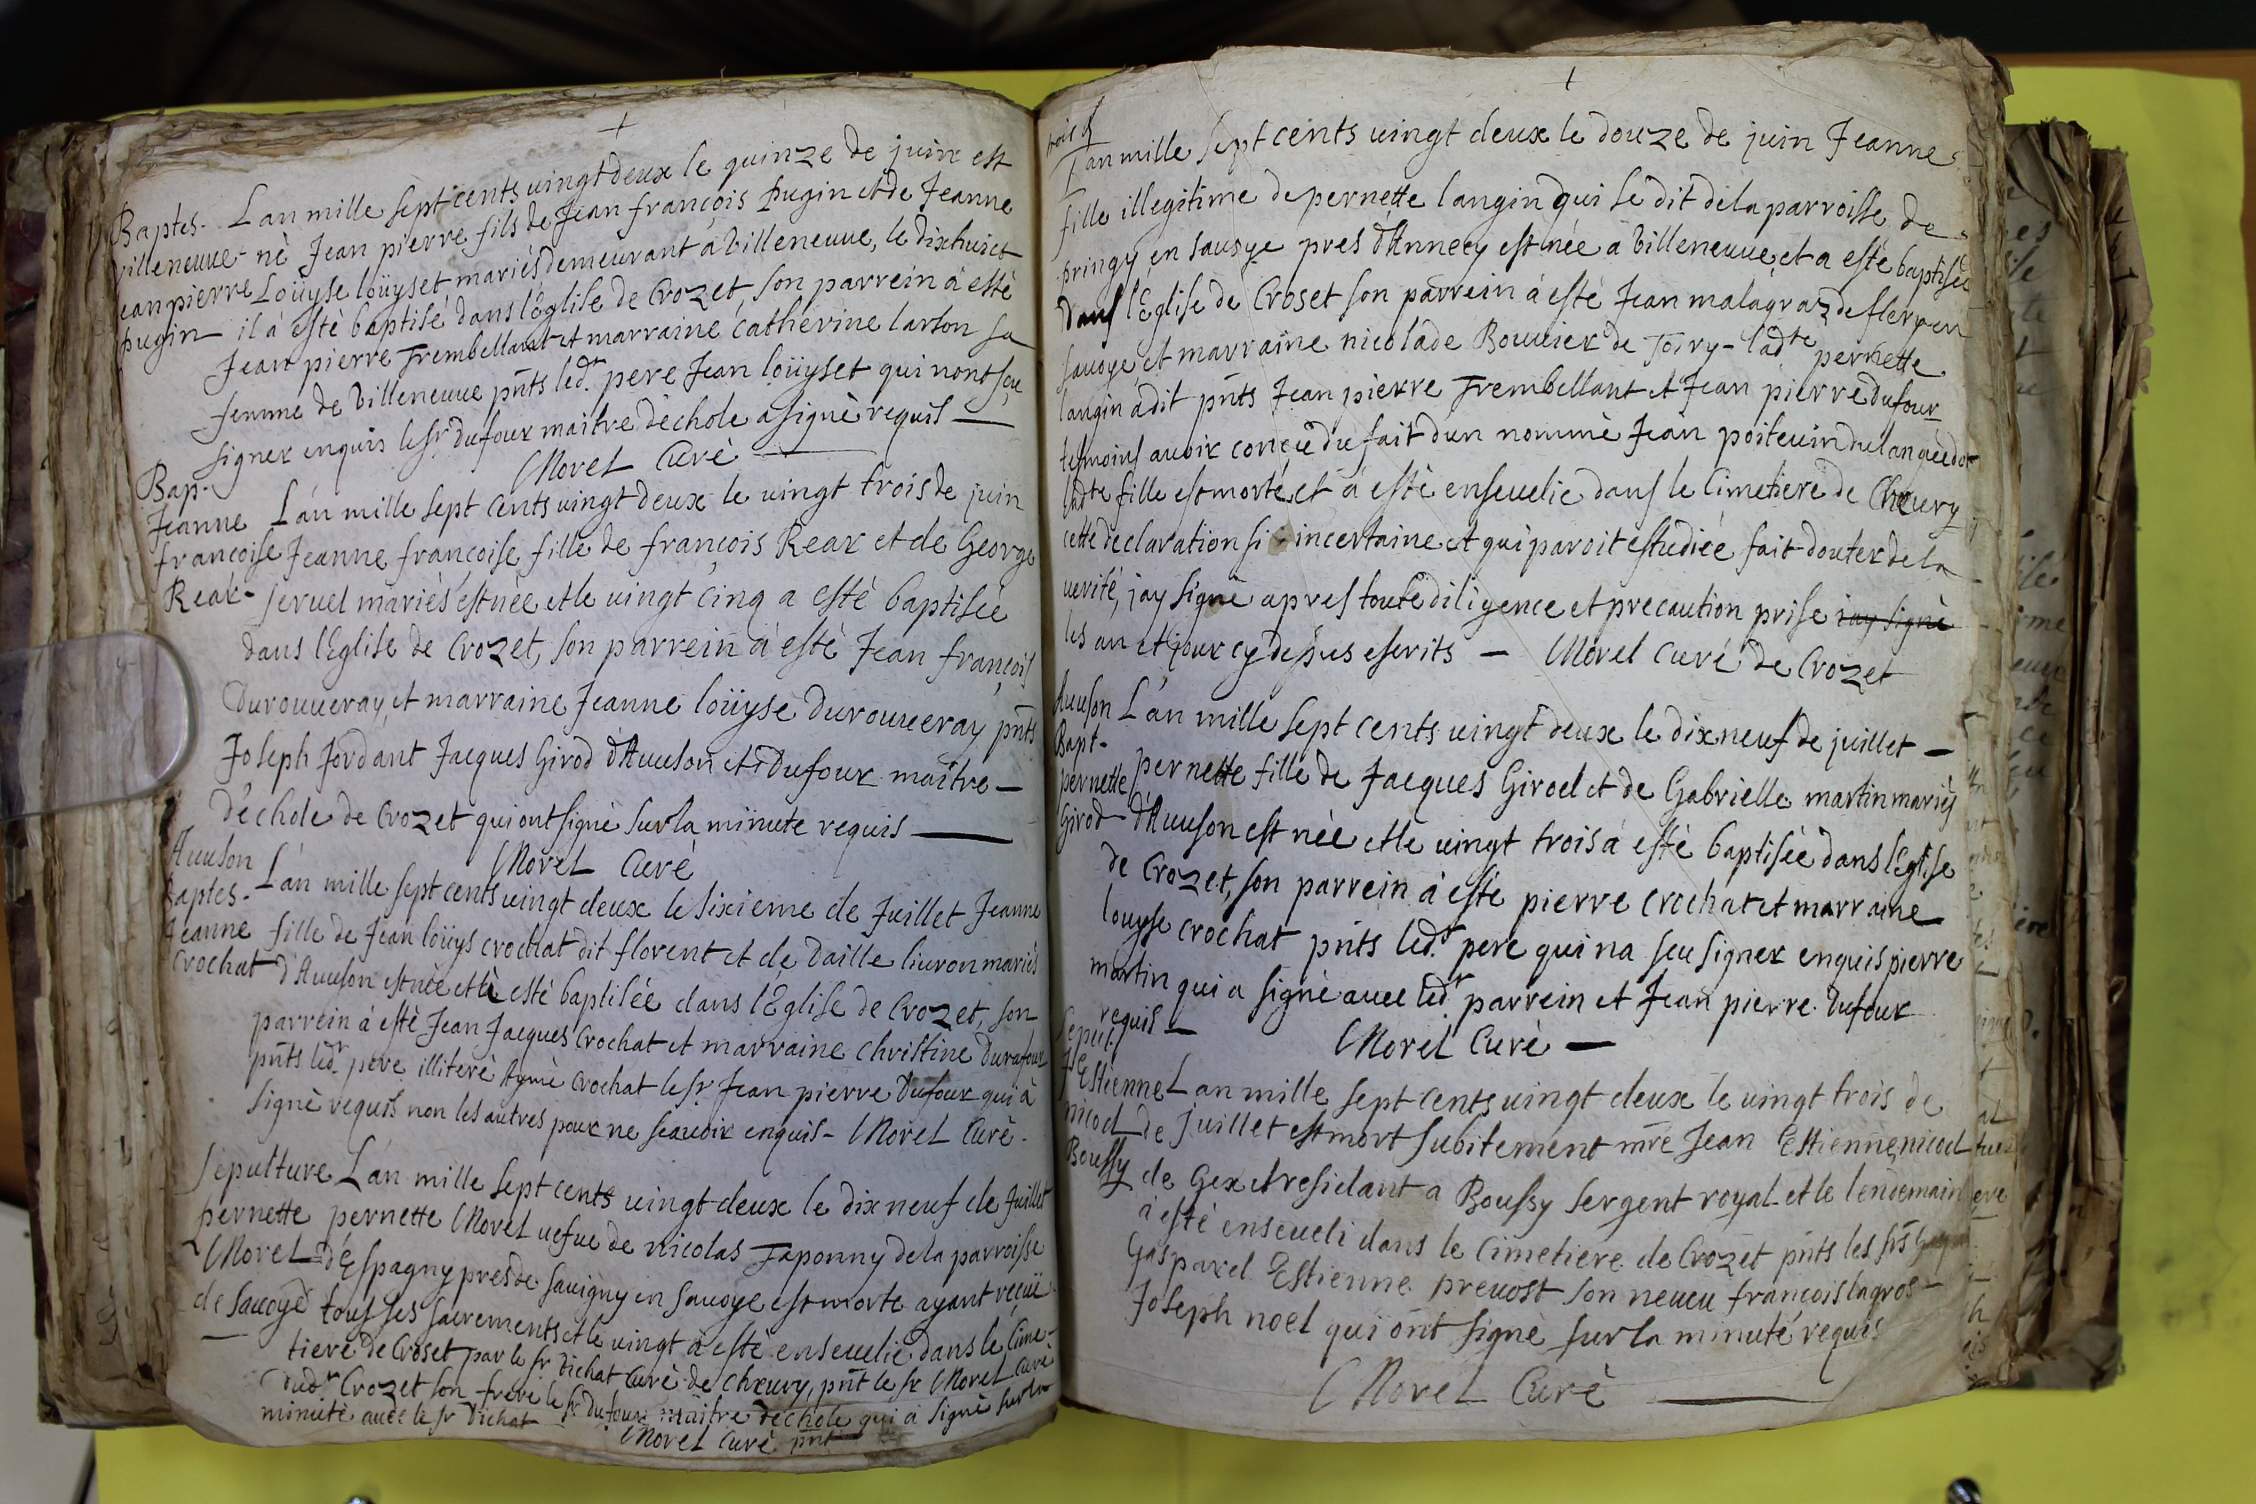 +
Baptes. L'an mille sept cents vingt deux le quinze de juin est
villeneuue né Jean pierre fils de Jean françois pugin et de Jeanne
Jean pierre Loüyse loüyset mariés demeurant a Villeneuue, le dixhuict
pugin il a esté baptisé dans l'Eglise de Crozet, son parrein a esté
Jean pierre Trembellant et marraine catherine larson sa
femme de Villeneuue pnts led. pere Jean loüyset qui n'ont sçeu
signer enquis le sr dufour maitre d'echole a signé requis
Morel Curé
Bap.
Jeanne L'an mille sept cents vingt deux le vingt trois de juin
françoise Jeanne françoise fille de françois Rear et de George
Rear Jeruel mariés est née et le vingt cinq a esté baptisée
dans l'Eglise de Crozet, son parrein a esté Jean françois
Durouueray, et marraine Jeanne loüyse Durouueray pnts
Joseph Jordant Jacques Girod d'Auuson et Dufour maitre
d'echole de Crozet qui ont signé sur la minute requis
Morel Curé
Auuson
baptes. L'an mille sept cents vingt deux le sixieme de Juillet Jeanne
Jeanne fille de Jean loüys crochat dit florent et de Daille liuron mariés
Crochat d'Auuson est née et a esté baptisée dans l'Eglise de Crozet, son
parrein a esté Jean Jacques Crochat et marraine Christine Durafour
pnts led. pere illiteré Aymé Crochat le sr Jean pierre Dufour qui a
signé requis non les autres pour ne sçauoir enquis - Morel Curé.
Sepulture L'an mille sept cents vingt deux le dix neuf de Juillet
pernette pernette Morel uefue de nicolas Japonny de la parroisse
Morel d'Espagny pres de sauigny en sauoye est morte ayant reçue
de sauoye tous ses sacrements et le vingt a esté enseuelie dans le Cime-
tiere de Croset par le sr Dichat Curé de Cheury, pnt le sr Morel Curé
dud. Crozet son frere le sr dufour maitre d'echole qui a signé sur la
minute auec le sr Dichat
Morel Curé pnt
+
trois
L'an mille sept cents vingt deux le douze de juin Jeanne
fille illegitime de pernette langin qui se dit de la parroisse de
pringy en sauoye pres d'Annecy est née a Villeneuue et a esté baptisée
dans l'Eglise de Croset son parrein a esté Jean malagraz de flery en
sauoye et marraine nicolade Bouuier de Toiry - ladte pernette
langin a dit pnts Jean pierre Trembellant et Jean pierre dufour
tesmoins auoir conçeu du fait d'un nommé Jean poiteuin du languedoc
ladte fille est morte, et a esté enseuelie dans le Cimetiere de Cheury
cette declaration si incertaine et qui paroit estudiée fait douter de la
uerité, j'ay signé apres toute diligence et precaution prise j'ay signé
les an et jour cy dessus escrits - Morel Curé de Crozet
Auuson L'an mille sept cents vingt deux le dix neuf de juillet
Bapt.
pernette pernette fille de Jacques Girod et de Gabrielle martin mariés
Girod d'Auuson est née et le vingt trois a esté baptisée dans l'Eglise
de Crozet, son parrein a esté pierre Crochat et marraine
louyse Crochat pnts led. pere qui n'a sçeu signer enquis pierre
martin qui a signé auec led. parrein et Jean pierre Dufour
requis
Morel Curé
Sepul.
Jean
Estienne L'an mille sept cents vingt deux le vingt trois de
nicod de Juillet est mort subitement mre Jean Estienne nicod
Boussy de Gex et residant a Boussy sergent royal et le lendemain
a esté enseueli dans le Cimetiere de Crozet pnts les srs
Gasparel Estienne preuost son neueu françois lagros
Joseph noel qui ont signé sur la minute requis
Morel Curé